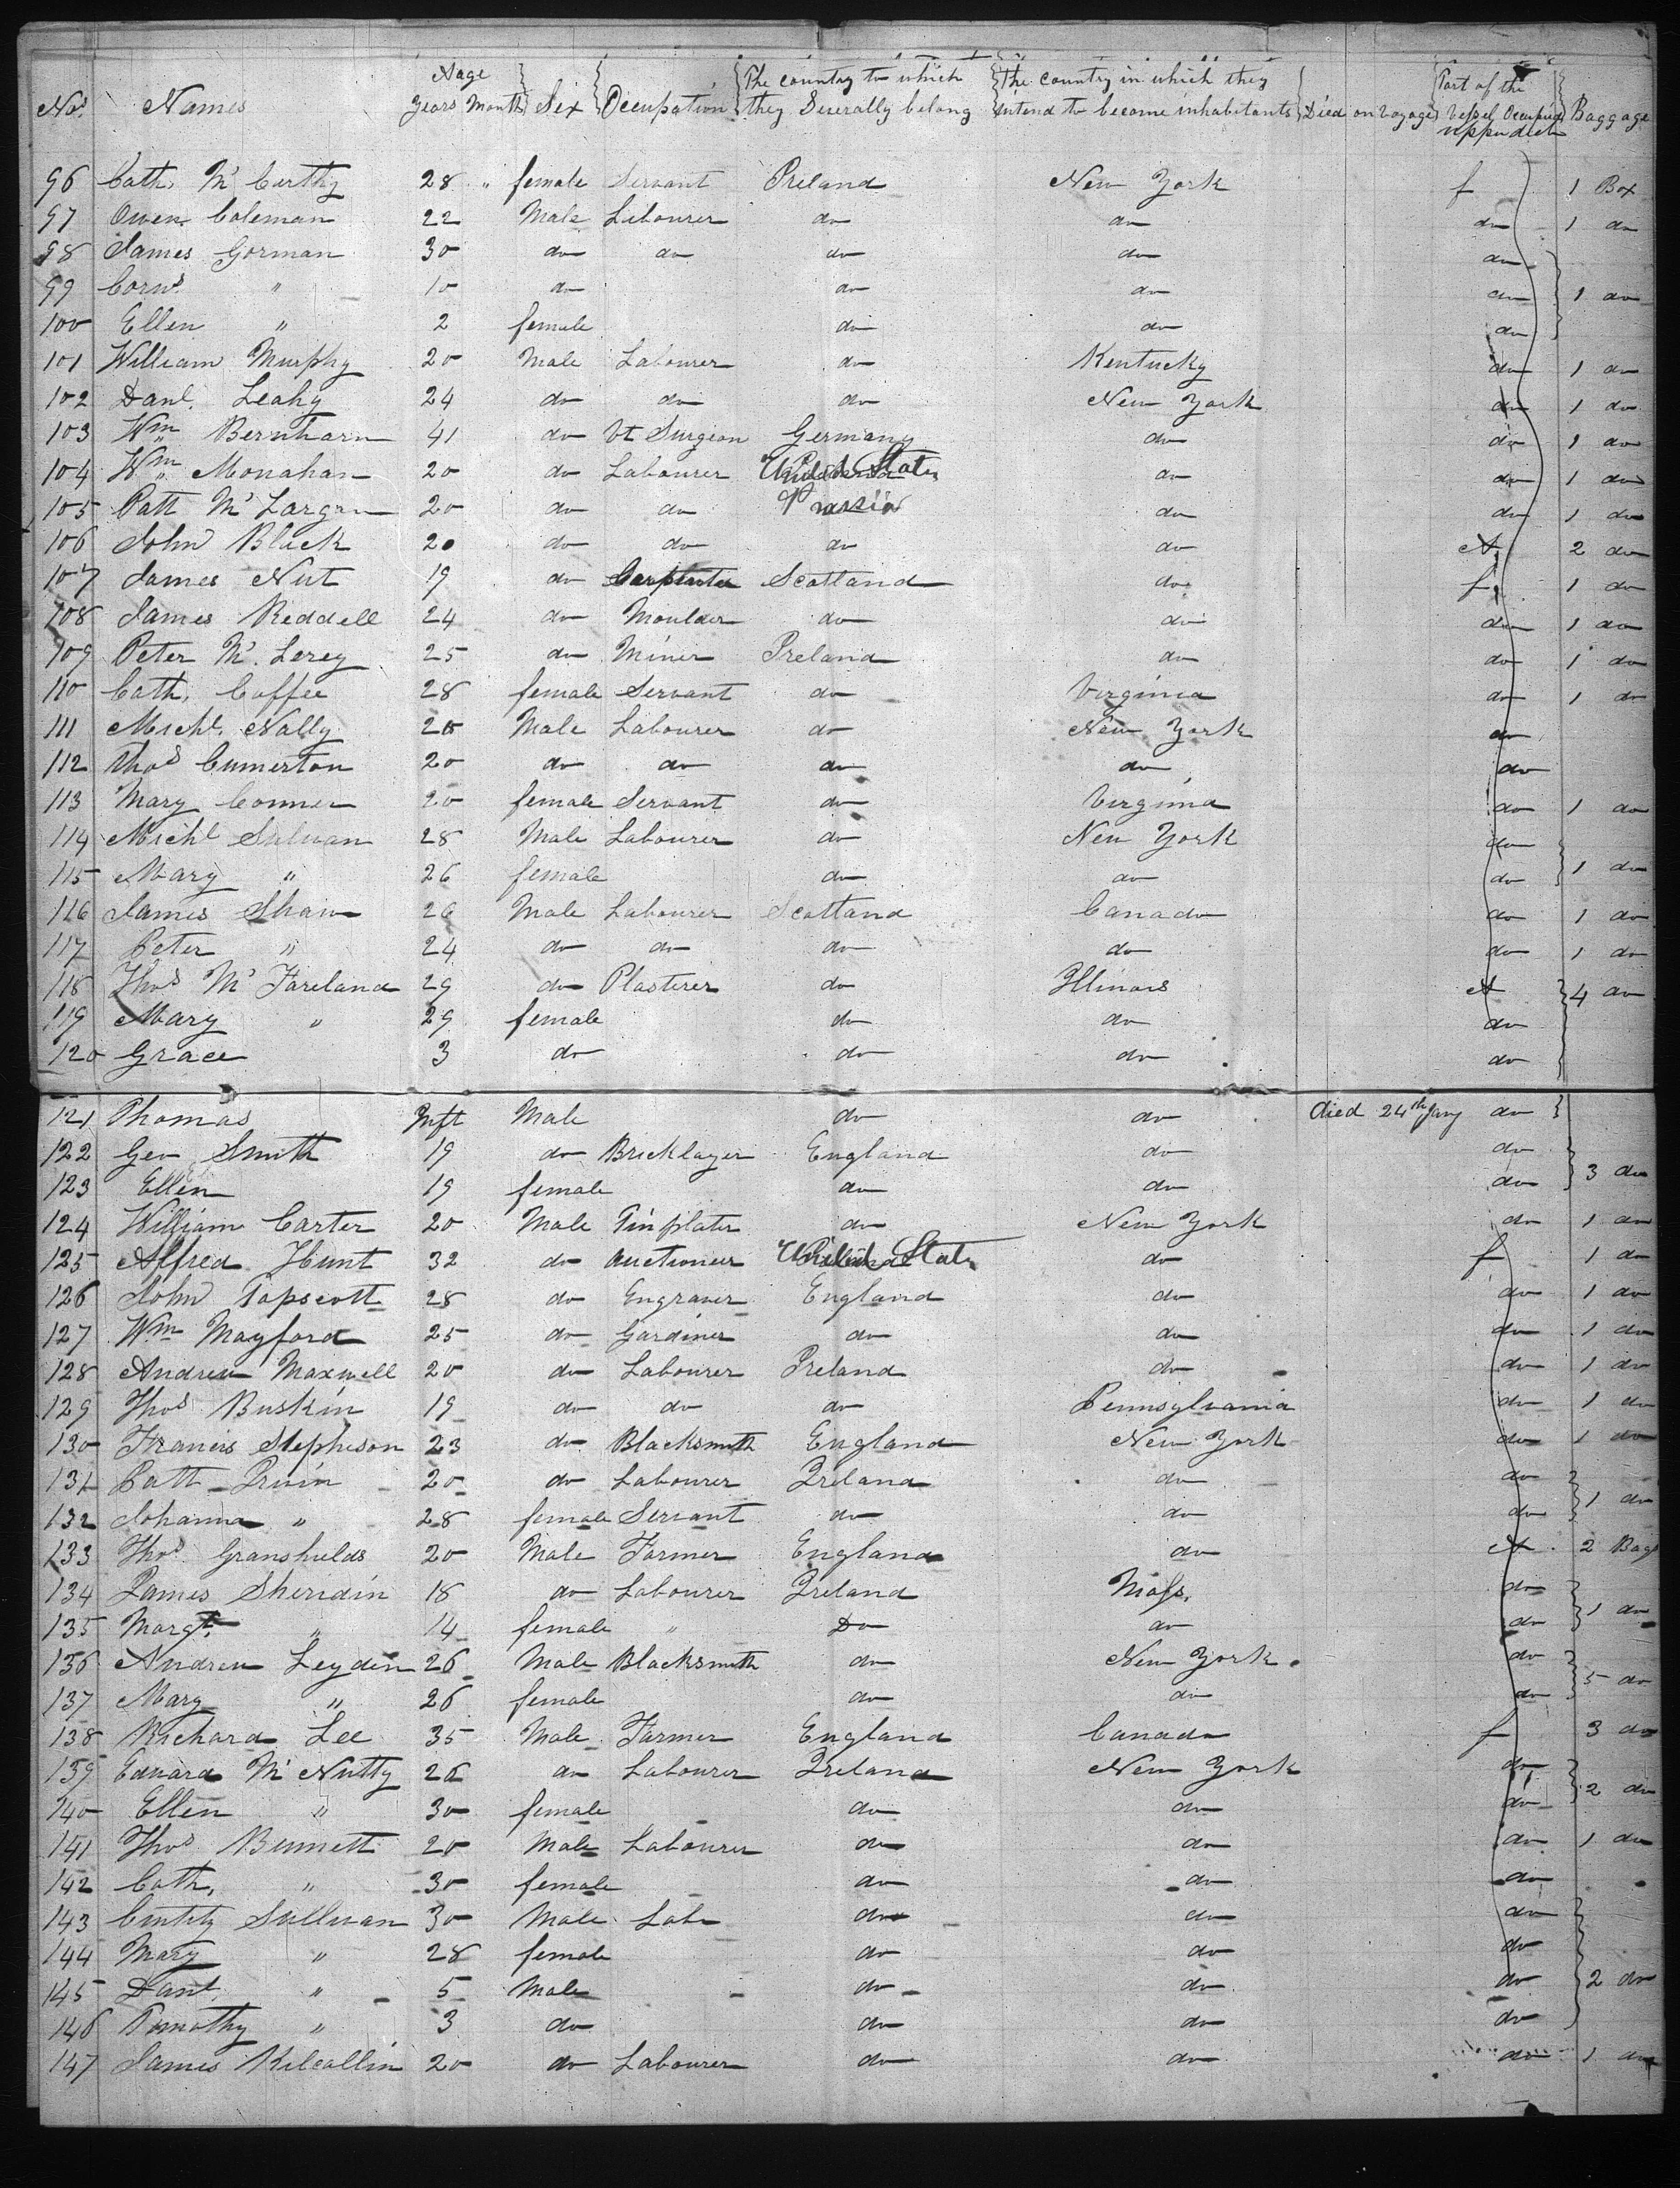 Nos. Names Aage Years Month Sex Occupation The country to which they Severally belong The country in which they intend to become inhabitants Died on Voyage Part of the Vessel Occupied Baggage
96 Cath. Mc Carthy 28 " female Servant Ireland New York f 1 Box
97 Owen Coleman 22 Male Labourer do do do 1 do
98 James Gorman 30 do do do do do
99 Corns " 10 do do do do 1 do
100 Ellen " 2 female do do do
101 William Murphy 20 Male Labourer do Kentucky do 1 do
102 Danl. Leahy 24 do do do New York do 1 do
103 Wm Bernharn 41 do Vt Surgeon Germany do do 1 do
104 Wm Monahan 20 do Labourer United States do do 1 do
105 Patt Mc 20 do do do do 1 do
106 John Black 20 do do do do A 2 do
107 James Nut 19 do Carpenter Scotland do f 1 do
108 James Reddell 24 do Moulder do do do 1 do
109 Peter Mc. Lerey 25 do Miner Ireland do do 1 do
110 Cath. Coffee 28 female Servant do Virginia do 1 do
111 Michl. Nally Male Labourer do New York do
112 Thos Cumerton 20 do do do do do
113 Mary Conner 20 female Servant do Virginia do 1 do
114 Michl Sulivan 28 Male Labourer do New York do
115 Mary " 26 female do do do 1 do
116 James Shaw 26 Male Labourer Scotland Canada do 1 do
117 Peter " 24 do do do do do 1 do
118 Thos Mc Fareland 29 do Plasterer do Illinois A 4 do
119 Mary " 29 female do do do
120 Grace 3 do do do do
121 Thomas Inft Male do do died 24th Jany do
122 Geo Smith 19 do Bricklayer England do do
123 Ellen 19 female do do do 3 do
124 William Carter 20 Male Tinplater do New York do 1 do
125 Alfred Hunt 32 do Auctioneer United States do f 1 do
126 John Tapscott 28 do Engraver England do do 1 do
127 Wm Mayford 25 do Gardiner do do do 1 do
128 Andrew Maxwell 20 do Labourer Ireland do do 1 do
129 Thos Buskin 19 do do do Pennsylvania do 1 do
130 Francis Stepheson 23 do Blacksmith England New York do 1 do
131 Patt Irwin 20 do Labourer Ireland do do
132 Johanna " 28 female Servant do do do 1 do
133 Thos Gransfields 20 Male Farmer England do A 2 Bags
134 James Sheridin 18 do Labourer Ireland Mass. do
135 Margt. " 14 female " Do do do 1 do
136 Andrew Leyden 26 Male Blacksmith do New York do
137 Mary " 26 female do do do 5 do
138 Richard Lee 35 Male Farmer England Canada f 3 do
139 Edward Mc Nutty 26 do Labourer Ireland New York do
140 Ellen " 30 female do do do 2 do
141 Thos Bennett 20 Male Labourer do do do 1 do
142 Cath. " 30 female do do do
143 Sullivan 30 Male Labr do do do
144 Mary " 28 female do do do
145 Danl. " 5 Male do do do 2 do
146 Timothy " 3 do do do do
147 James Kilcallin 20 do Labourer do do do 1 do